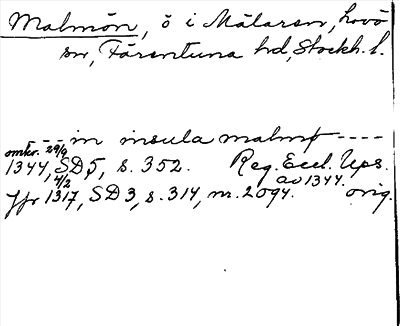 Malmön, ö i Mälaren, Lovö
sn, Färentuna hd, Stockh. l.
- - - in insula malmø - - - -
omkr. 29/9
1344, SD 5, s. 352. Reg. Eccl. Ups.
av 1344.
4/2
Jfr 1317, SD 3, s. 314, nr. 2094. orig.